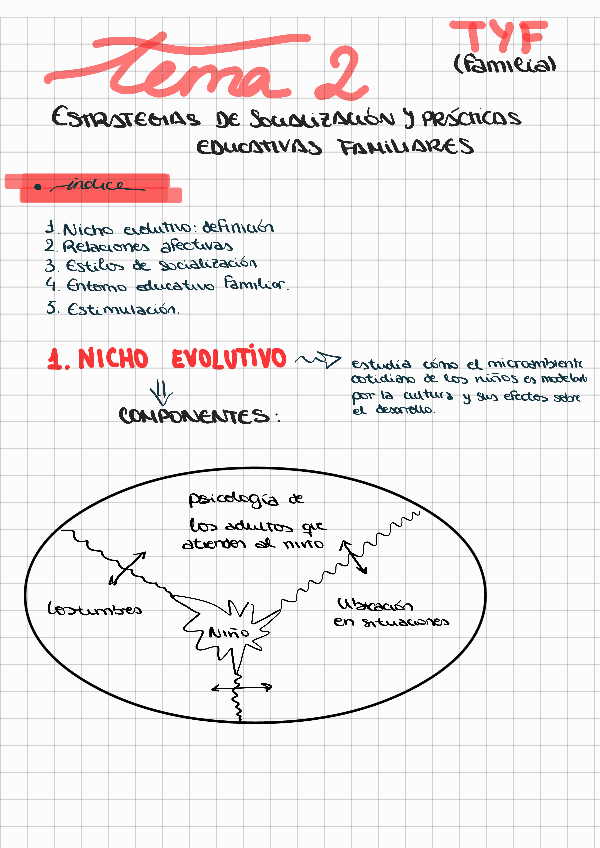 TYF
(familia)
Tema 2
ESTRATEGIAS DE SOCIALIZACIÓN Y PRÁCTICAS
EDUCATIVAS FAMILIARES
• índice
1. Nicho evolutivo: definición
2. Relaciones afectivas
3. Estilos de socialización
4. Entorno educativo familiar.
5. Estimulación.
1. NICHO EVOLUTIVO
estudia cómo el microambiente
cotidiano de los niños es modelado
por la cultura y sus efectos sobre
el desarrollo.
COMPONENTES:
psicología de
los adultos que
atienden al niño
Costumbres
Ubicación
en situaciones
NIÑO